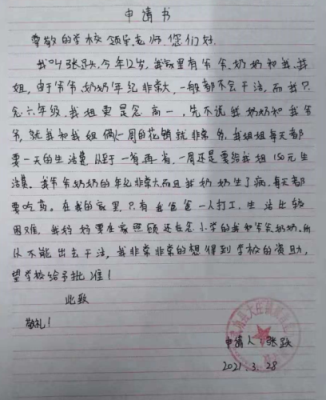 申请书
尊敬的学校领导老师您们好:
我叫张跃,今年12岁,我家里有爷爷,奶奶和我,我
姐,由于爷爷,奶奶年纪非常大,一般都不会干活,而我只
念六年级,我姐更是念高一,先不说我奶奶和我爷
爷,就我和我姐俩一周的花销就非常多,我姐姐每天都
要一天的生活费,从
一周还是要给我姐150元生
活费,我爷爷奶奶的年纪非常大而且我奶奶生了病,每天都
要吃药,在我的家里只有我爸爸一人打工,生活比较
困难,我妈妈要在家照顾还在念小学的我和爷爷奶奶,所
以不能出去干活,我非常非常的想得到学校的资助,
望学校给予批准!
此致
敬礼!
申请人:张跃
2021.3.28